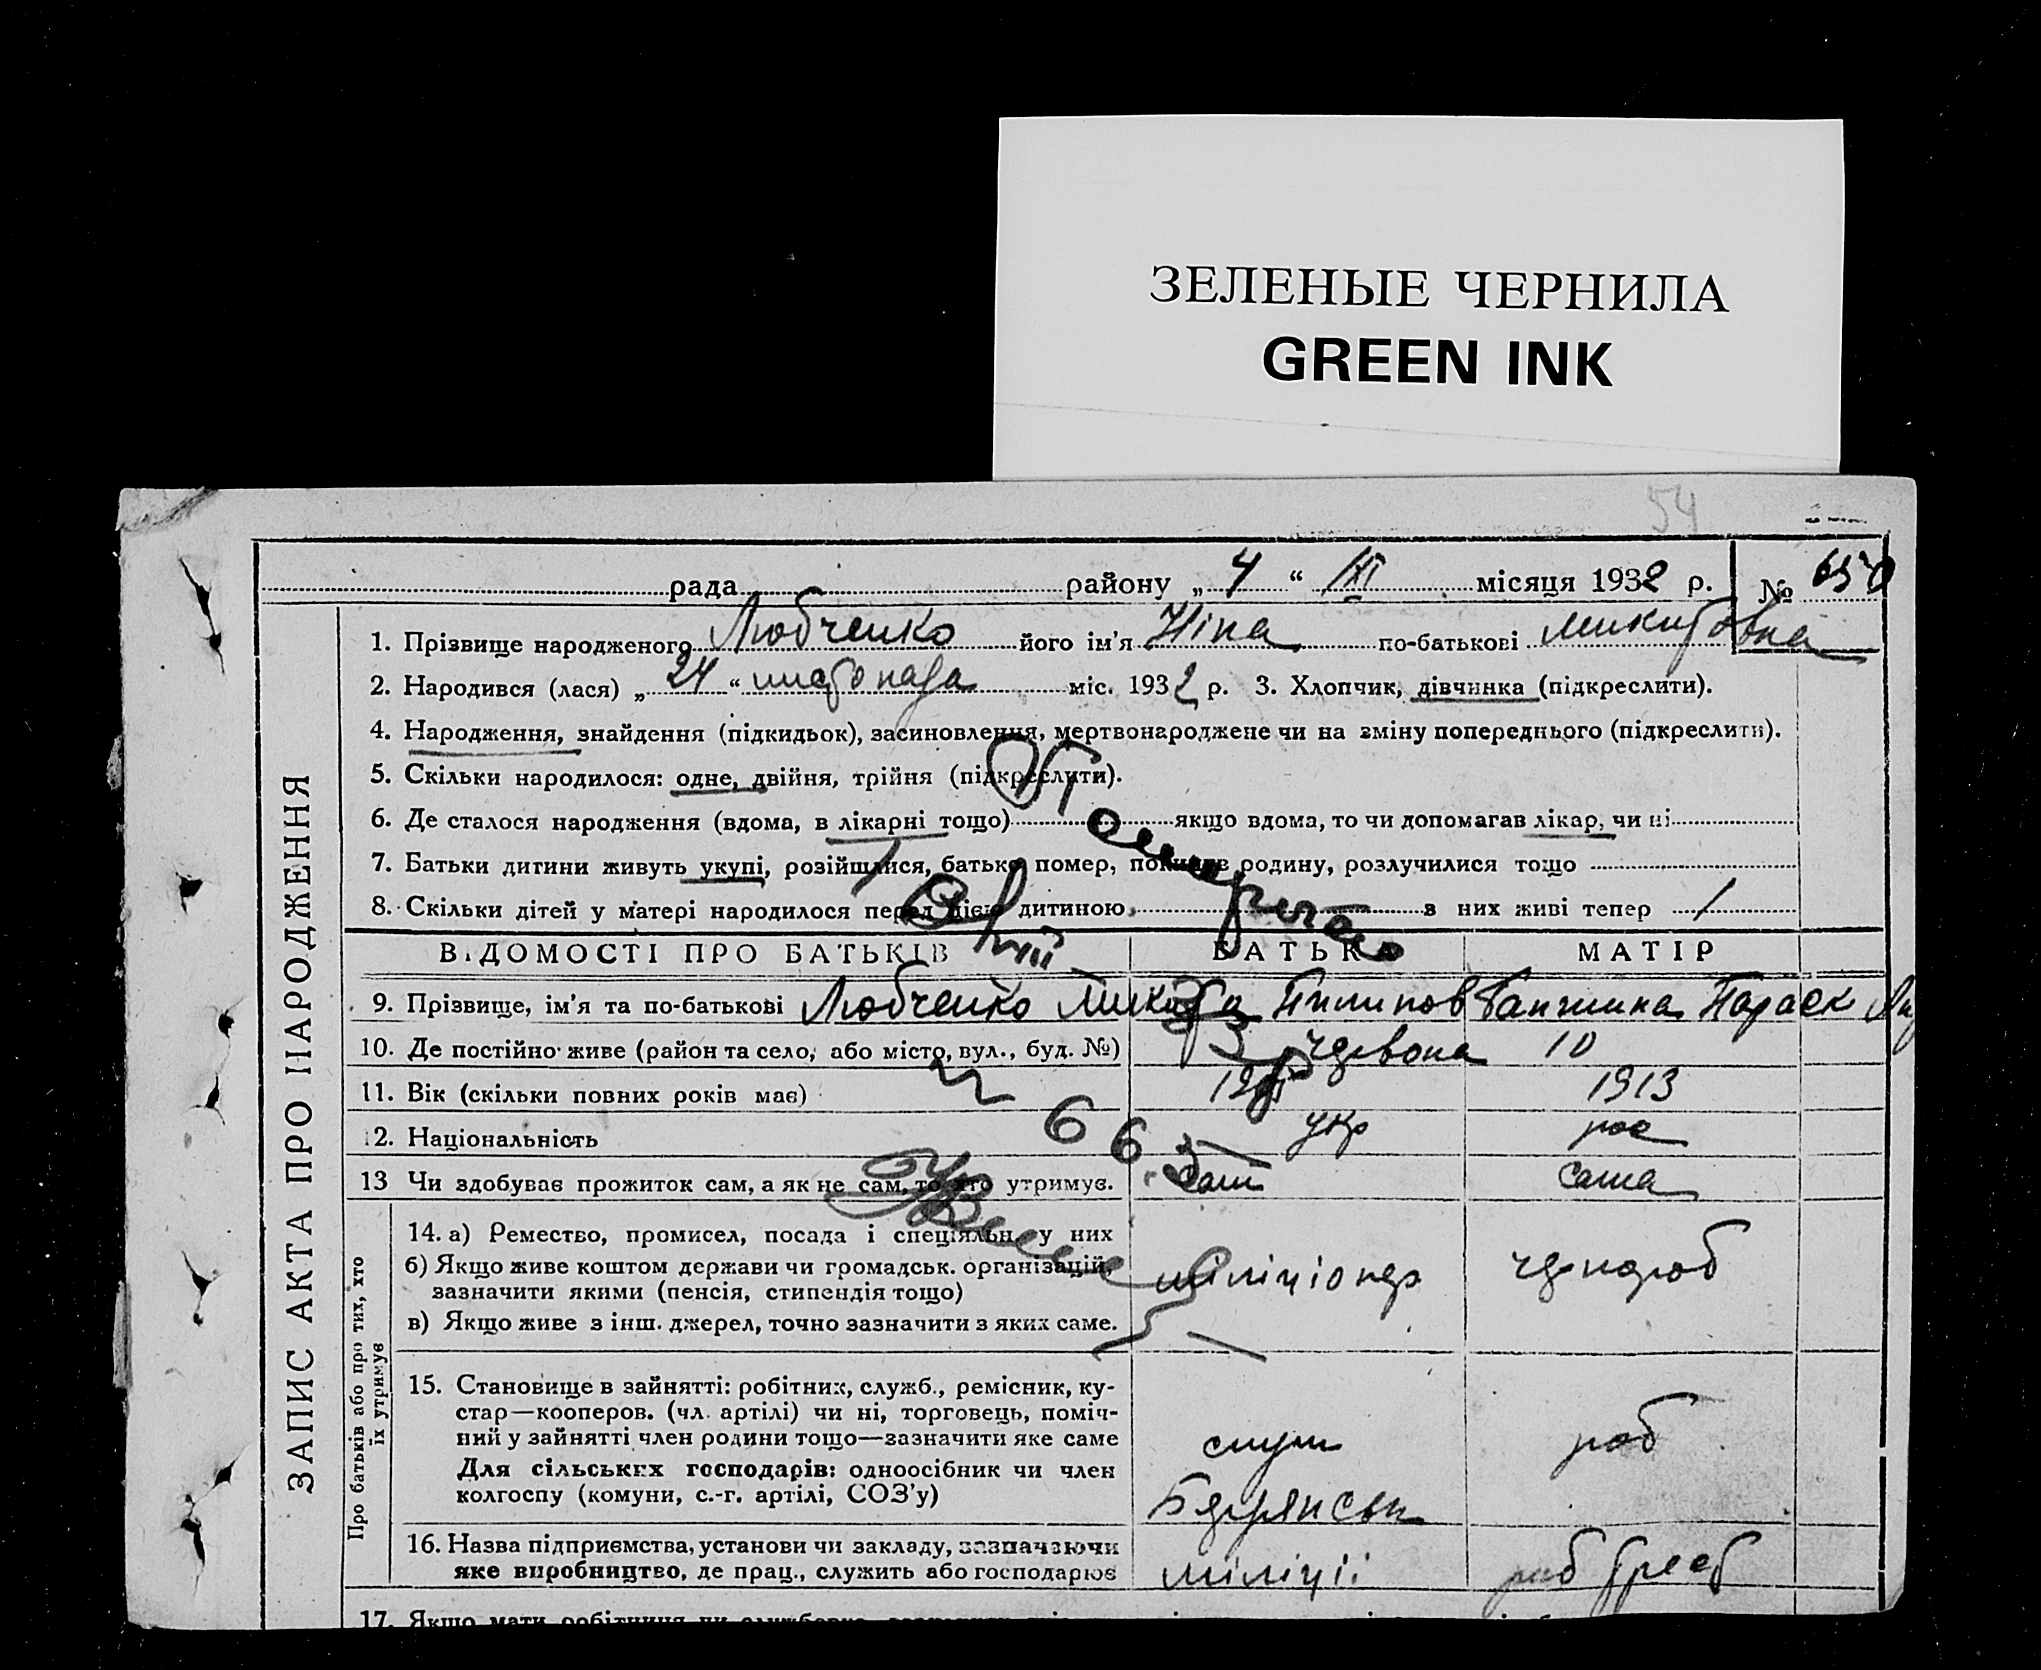 ЗЕЛЕНЫЕ ЧЕРНИЛА
GREEN INK
54
рада району „4“ місяця 1932 р. № 650
ЗАПИС АКТА ПРО НАРОДЖЕННЯ
1. Прізвище народженого Любченко його ім’я Ніна по-батькові Микитовна
2. Народився (лася) „24“ листопада міс. 1932 р. 3. Хлопчик, дівчинка (підкреслити).
4. Народження, знайдення (підкидьок), засиновлення, мертвонароджене чи на зміну попереднього (підкреслити).
5. Скільки народилося: одне, двійня, трійня (підкреслити).
6. Де сталося народження (вдома, в лікарні тощо) якщо вдома, то чи допомагав лікар, чи ні
7. Батьки дитини живуть укупі, розійшлися, батько помер, покинув родину, розлучилися тощо
8. Скільки дітей у матері народилося перед цією дитиною з них живі тепер 1
ВІДОМОСТІ ПРО БАТЬКІВ БАТЬКО МАТІР
9. Прізвище, ім’я та по-батькові Любченко Микита Пилипов Параск
10. Де постійно живе (район та село, або місто, вул., буд. №) Червона 10
11. Вік (скільки повних років має) 1913
12. Національність укр рос
13 Чи здобував прожиток сам, а як не сам, то хто утримує. Сам Сама
Про батьків або про тих, хто їх утримує
14. а) Ремество, промисел, посада і спеціяльн. у них
б) Якщо живе коштом держави чи громадськ. організацій, міліціонер чорнороб
зазначити якими (пенсія, стипендія тощо)
в) Якщо живе з інш. джерел, точно зазначити з яких саме.
15. Становище в зайнятті: робітник, служб., ремісник, ку-
стар—кооперов. (чл. артілі) чи ні, торговець, поміч-
ний у зайнятті член родини тощо—зазначити яке саме служ роб
Для сільських господарів: одноосібник чи член
колгоспу (комуни, с.-г. артілі, СОЗ’у) Бердянськ
16. Назва підприємства, установи чи закладу, зазначаючи
яке виробництво, де прац., служить або господарює міліції роб
17. Якщо мати робітниця чи службовка